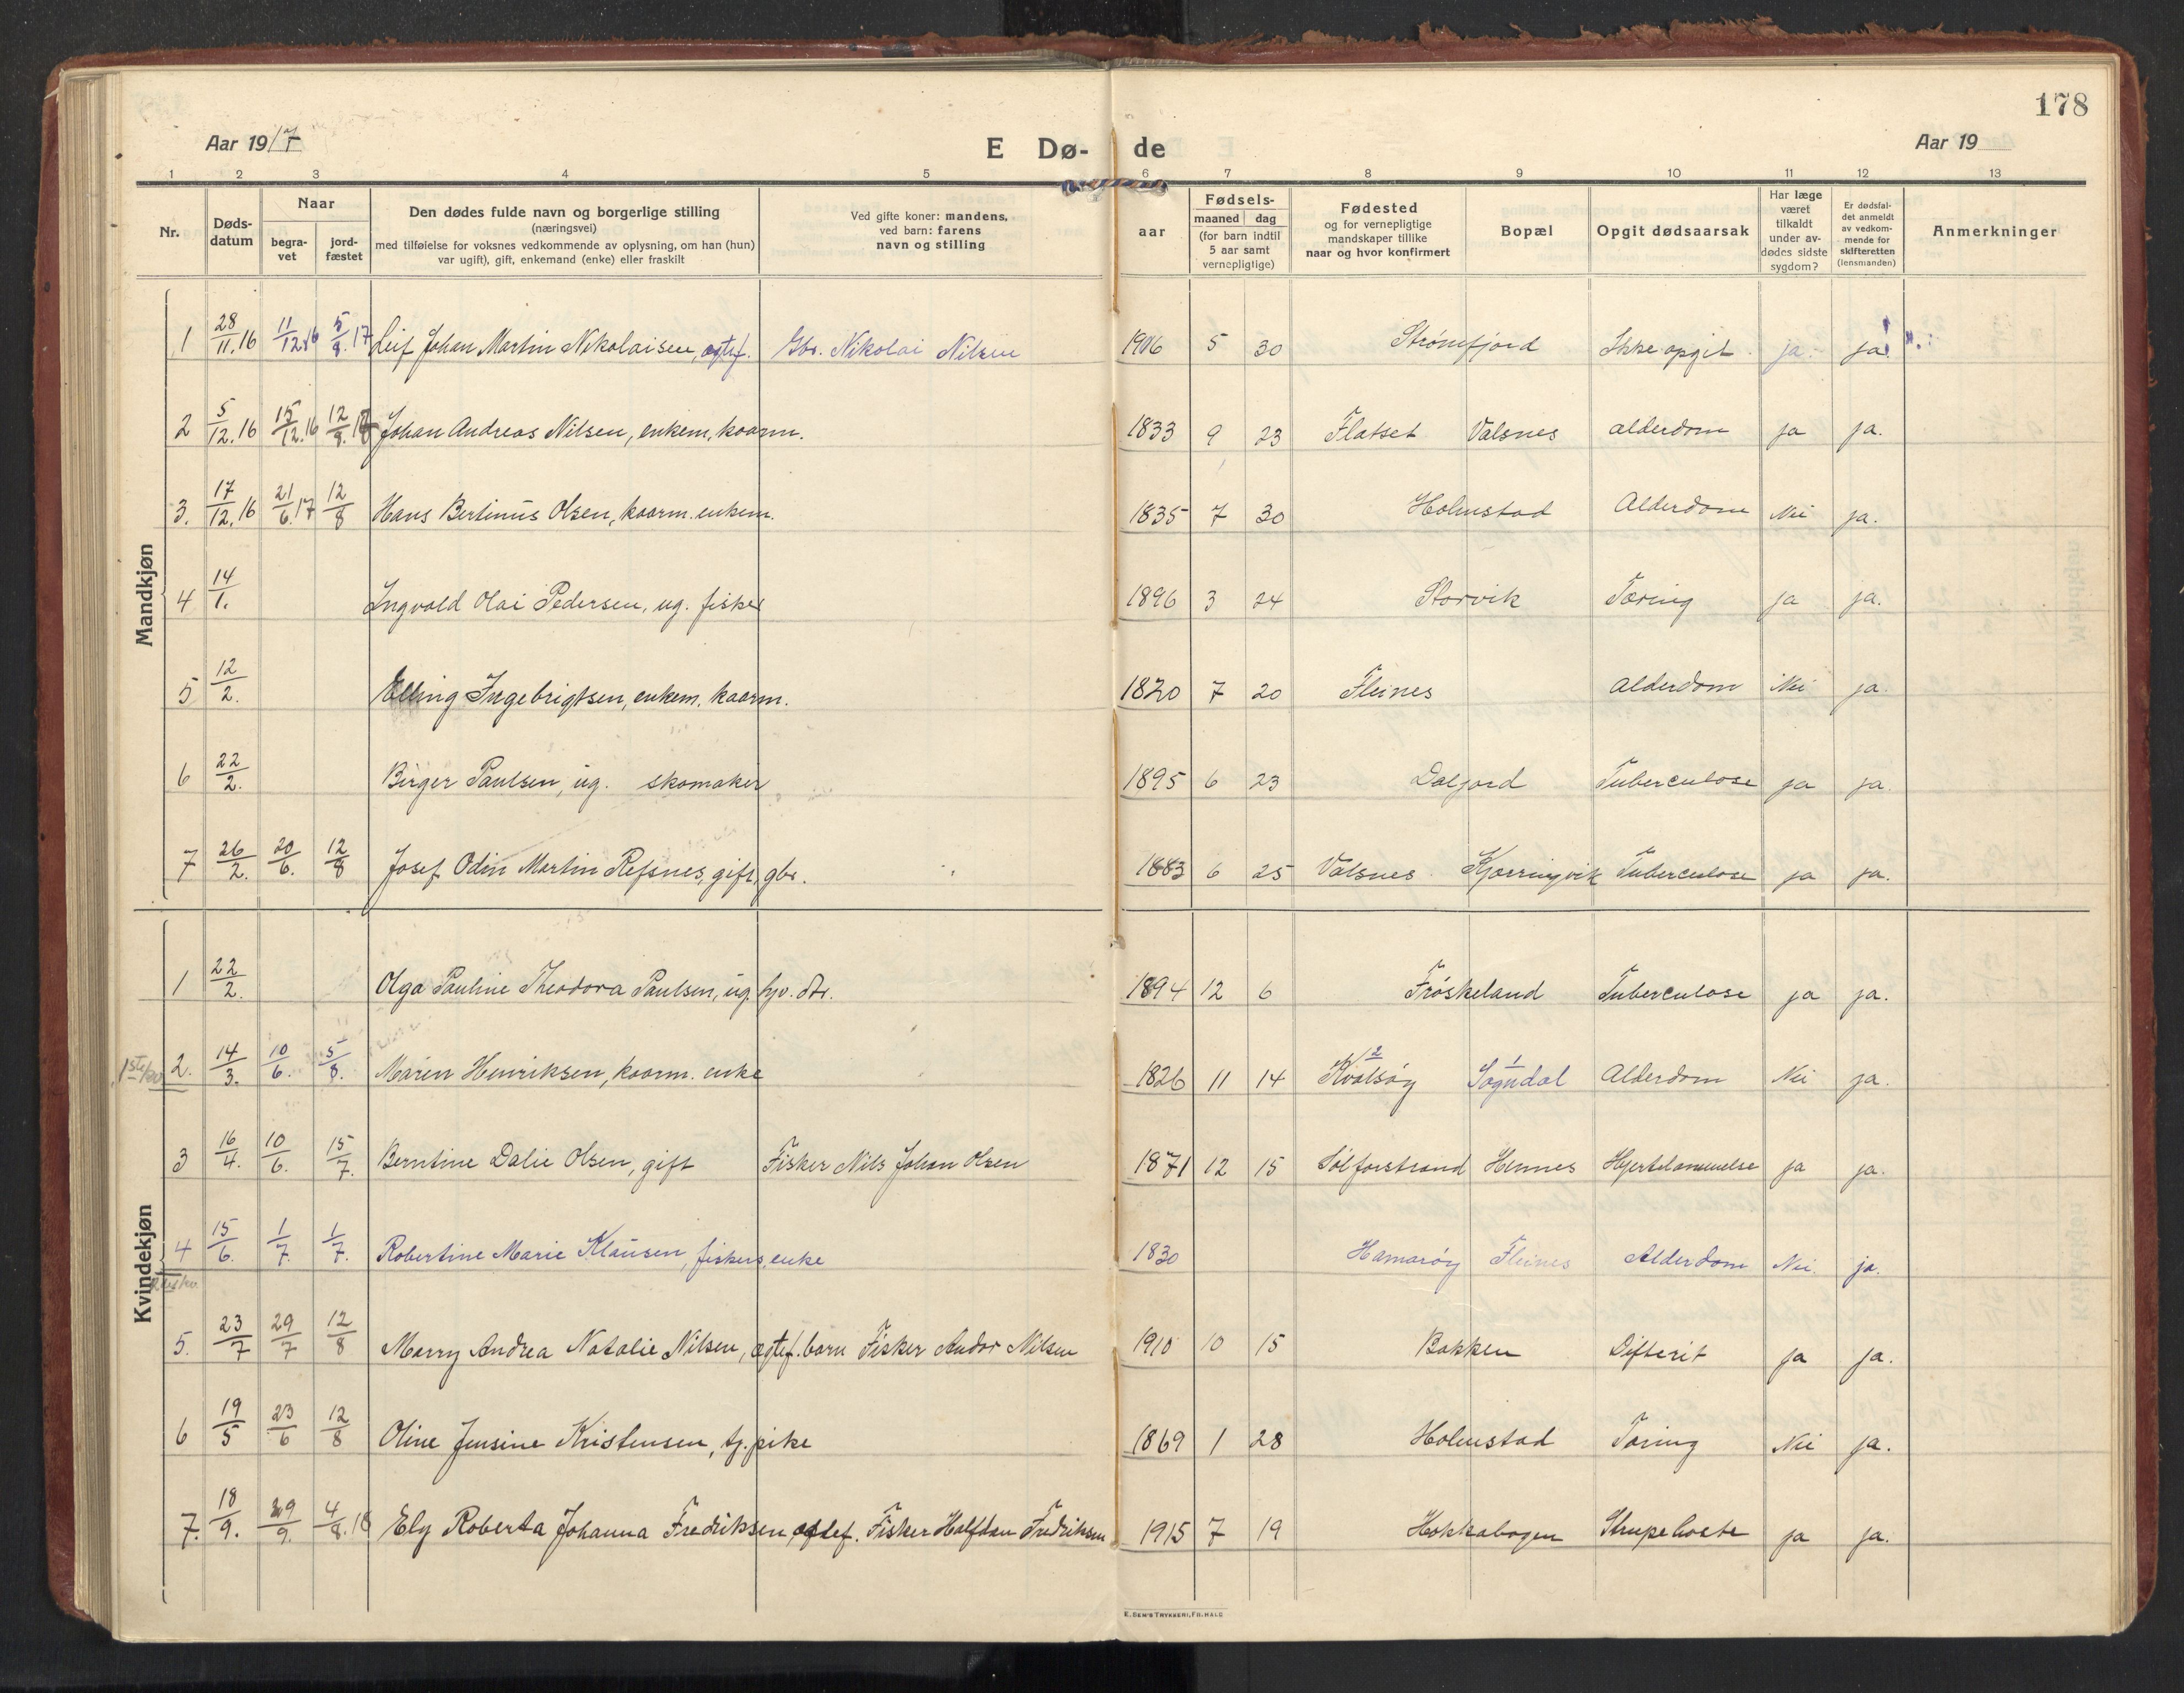 178
Aar 1917 E Dø- de Aar 19
1 2 3 4 5 6 7 8 9 10 11 12 13
Nr.
Døds-
datum
Naar
begra-
vet
jord-
fæstet
Den dødes fulde navn og borgerlige stilling
(næringsvei)
med tilføielse for voksnes vedkommende av oplysning, om han (hun)
var ugift), gift, enkemand (enke) eller fraskilt
Ved gifte koner: mandens,
ved barn: farens
navn og stilling
aar
Fødsels-
maaned dag
(for barn indtil
5 aar samt
vernepligtige)
Fødested
og for vernepligtige
mandskaper tillike
naar og hvor konfirmert
Bopæl
Opgit dødsaarsak
Har læge
været
tilkaldt
under av-
dødes sidste
sygdom?
Er dødsfal-
det anmeldt
av vedkom-
mende for
skifteretten
(lensmanden)
Anmerkninger
Mandkjøn
1 28/11.16 11/12.16 5/8.17 Leif Johan Martin Nikolaisen, egtef. Gbr. Nikolai Nilsen 1906 5 30 Strømfjord Ikke opgit ja. ja.
2 5/12.16 15/12.16 12/8. Johan Andreas Nilsen, enkem, kaarm. 1833 9 23 Flatset Valsnes alderdom ja ja.
3. 17/12.16 21/6.17 12/8 Hans Bertinus Olsen, kaarm. enkem. 1835 7 30 Holmstad Alderdom Nei ja.
4 14/1. Ingvald Olai Pedersen, ug. fisker 1896 3 24 Storvik Tæring ja ja.
5 12/2. Elling Ingebrigtsen, enkem. kaarm. 1820 7 20 Fleines Alderdom Nei ja.
6 22/2. Birger Paulsen, ug. skomaker 1895 6 23 Dalfjord Tuberculose ja ja.
7 26/2. 20/6. 12/8 Josef Odin Martin Refsnes, gift, gbr. 1883 6 25 Valsnes Kjærringvik Tuberculose ja ja.
Kvindekjøn
1 22/2. Olga Pauline Theodora Paulsen, ug. hjv. dtr. 1894 12 6 Frøskeland Tuberculose ja ja.
2. 14/3. 10/6. 5/8. Maren Henriksen, kaarm. enke 1826 11 14 2 Kvalsøy 1 Sogndal Alderdom Nei ja.
3 16/4. 10/6. 15/7. Berntine Dalie Olsen, gift Fisker Nils Johan Olsen 1871 12 15 Solforstrand Hennes Hjertelammelse ja ja.
4 15/6. 1/7. 1/7. Robertine Marie Klausen, fiskers enke 1830 Hamarøy Fleines Alderdom Nei. ja.
5. 23/7 29/7 12/8 Marry Andrea Natalie Nilsen, egtef. barn Fisker Andor Nilsen 1910 10 15 Bakken Difterit ja ja.
6 19/5 23/6 12/8 Oline Jensine Kristensen, tj. pike 1869 1 28 Holmstad Tæring Nei ja.
7. 18/9. 29/9. 4/8.18 Ely Roberta Johanna Fredriksen, egtef. Fisker Halfdan Fredriksen 1915 7 19 Hokkabogen Strupehoste ja ja.
E. SEM'S TRYKKERI, FR.HALD